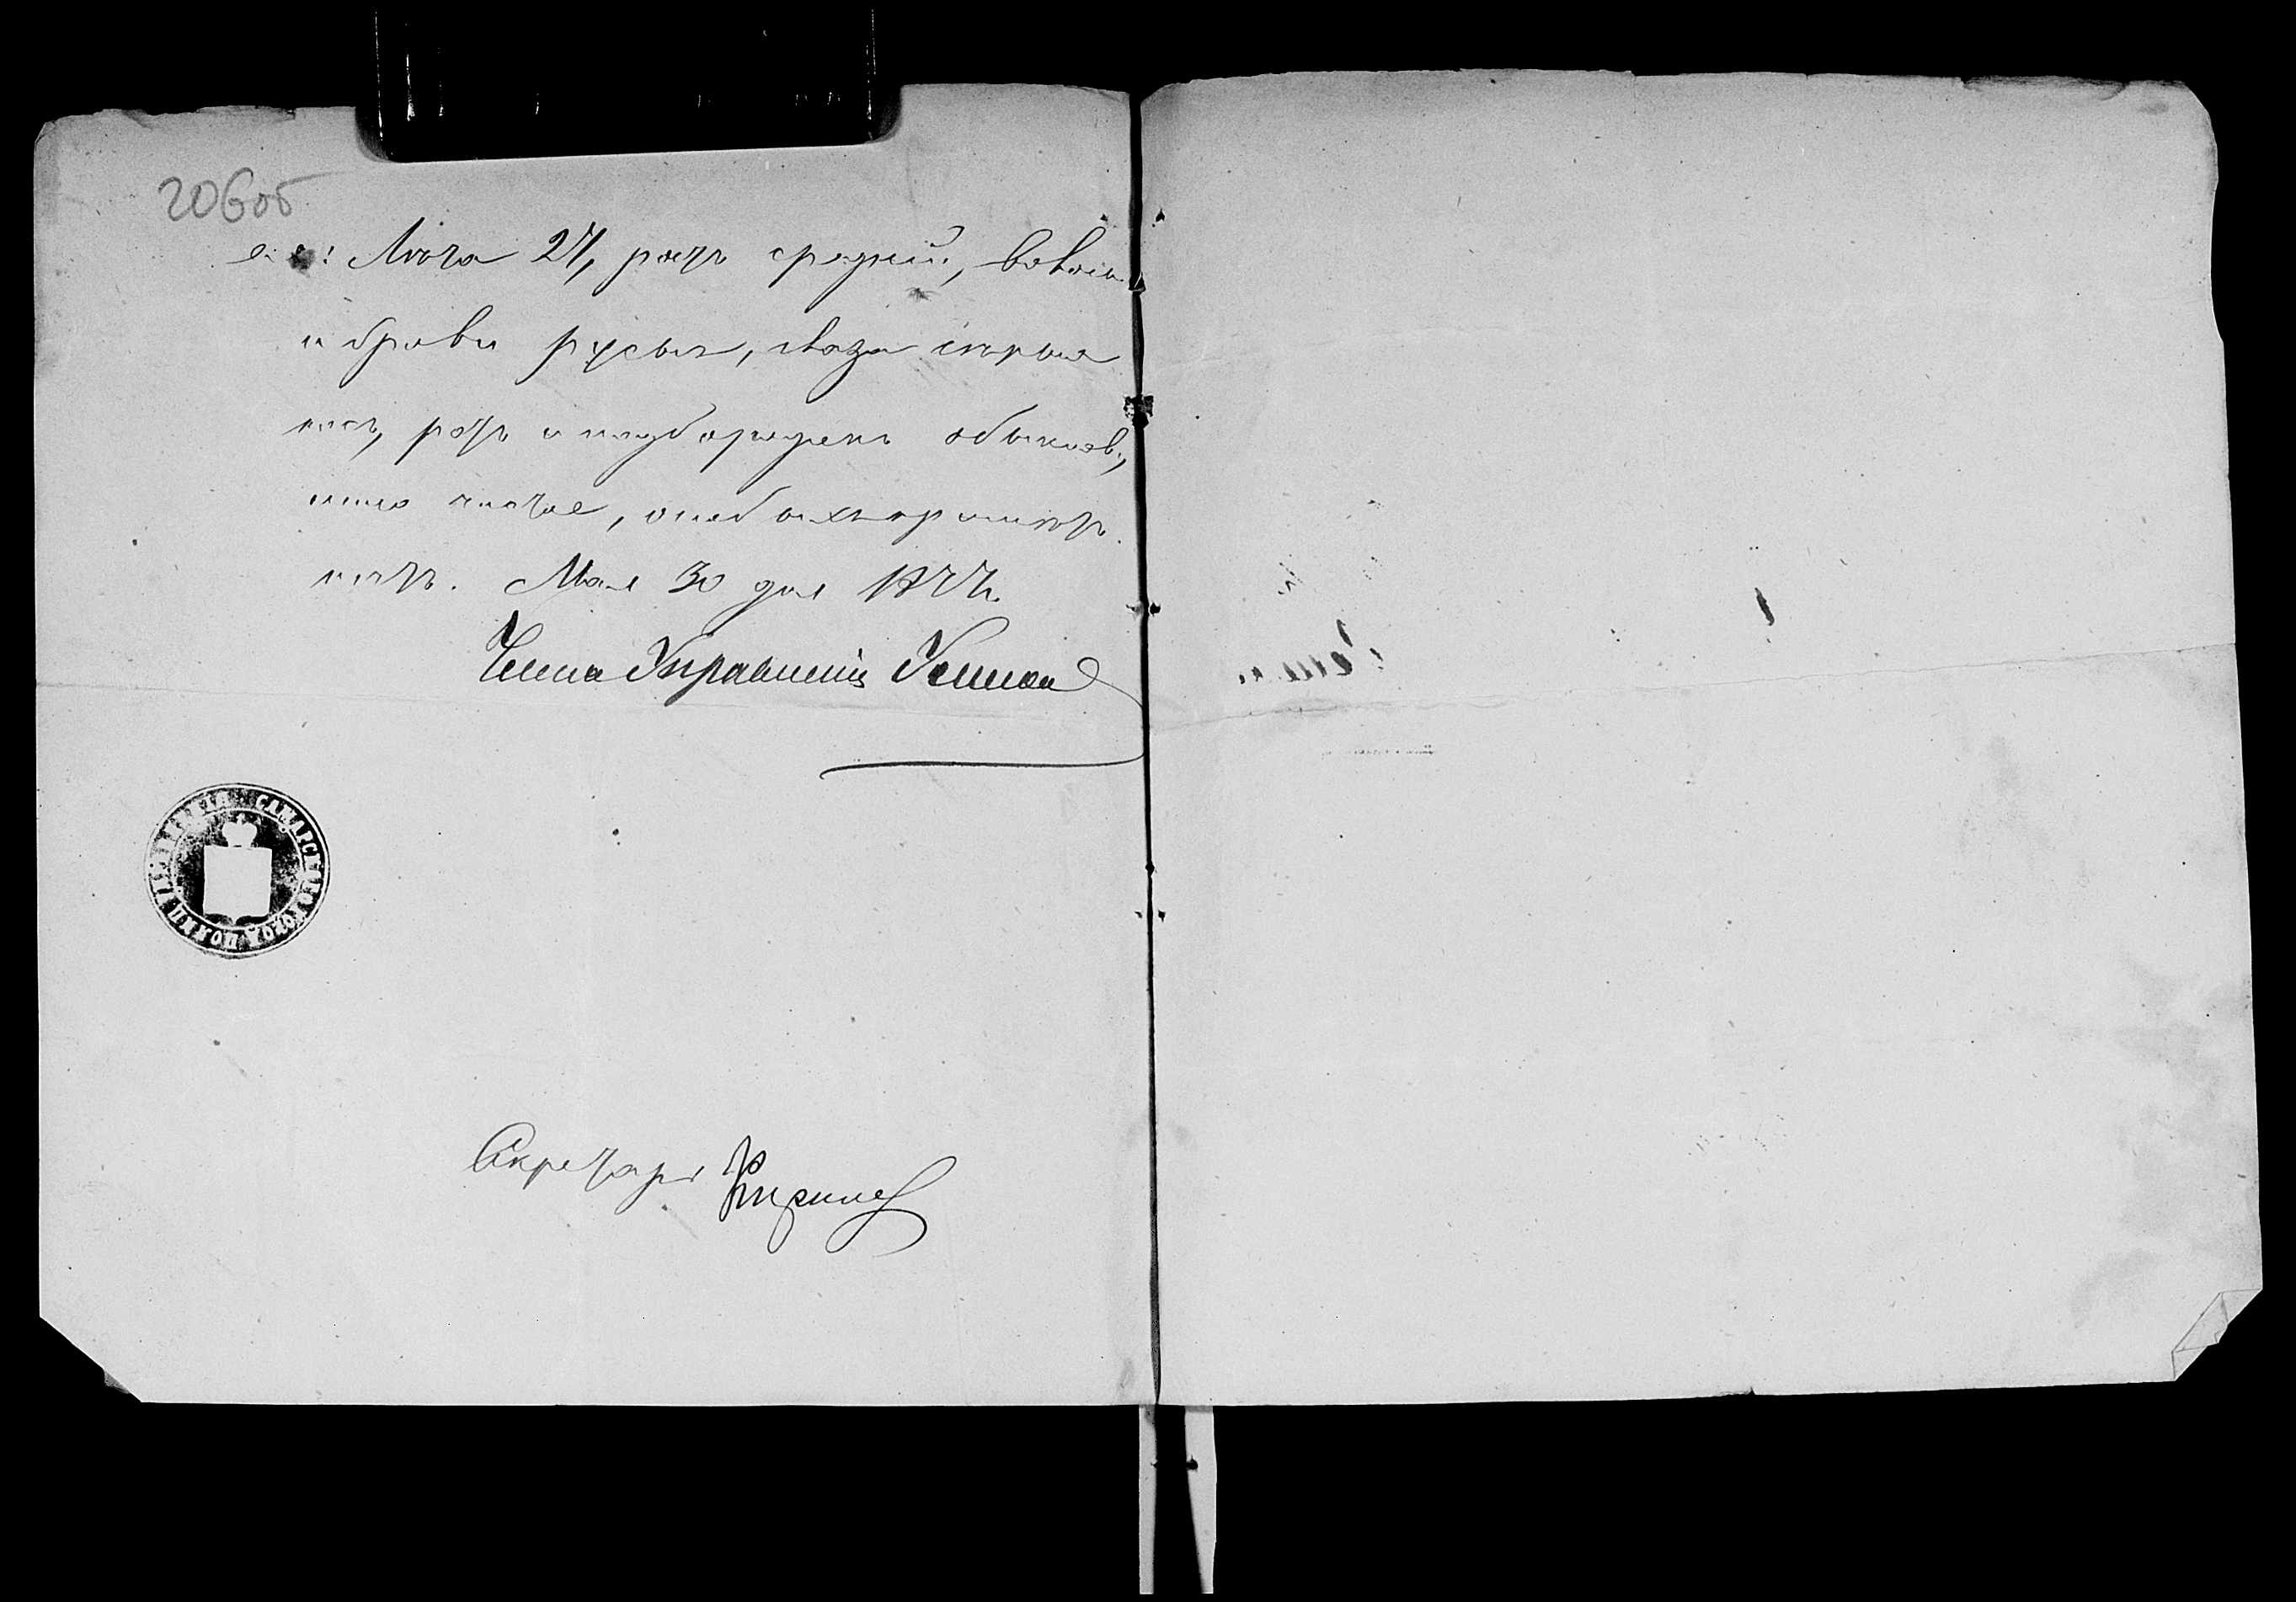 206об
ея: Лѣта 27, ростъ средній, волосы
и брови русыя, глаза сѣрыя
носъ, ротъ и подбородокъ обыкнов.,
лицо чистое, особыхъ примѣтъ
нѣтъ. Мая 30 дня 1877 г.
Члена Управленія
САМАРСКАГО ГОРОД. ПОЛИЦ.
Секретарь